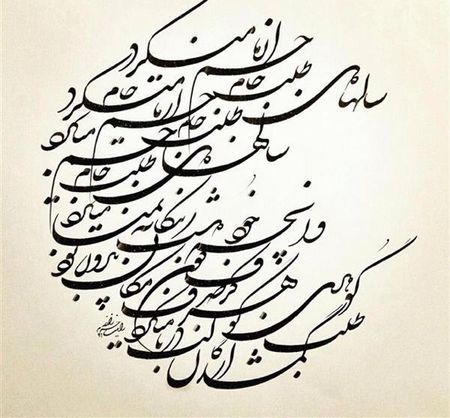 سالها دل طلب جام جم از ما میکرد
سالها دل طلب جام جم از ما میکرد
طلب جام جم میکرد
وانچه خود داشت ز بیگانه تمنا میکرد
گوهری کز صدف کون و مکان بیرون بود
طلب از گمشدگان لب دریا میکرد